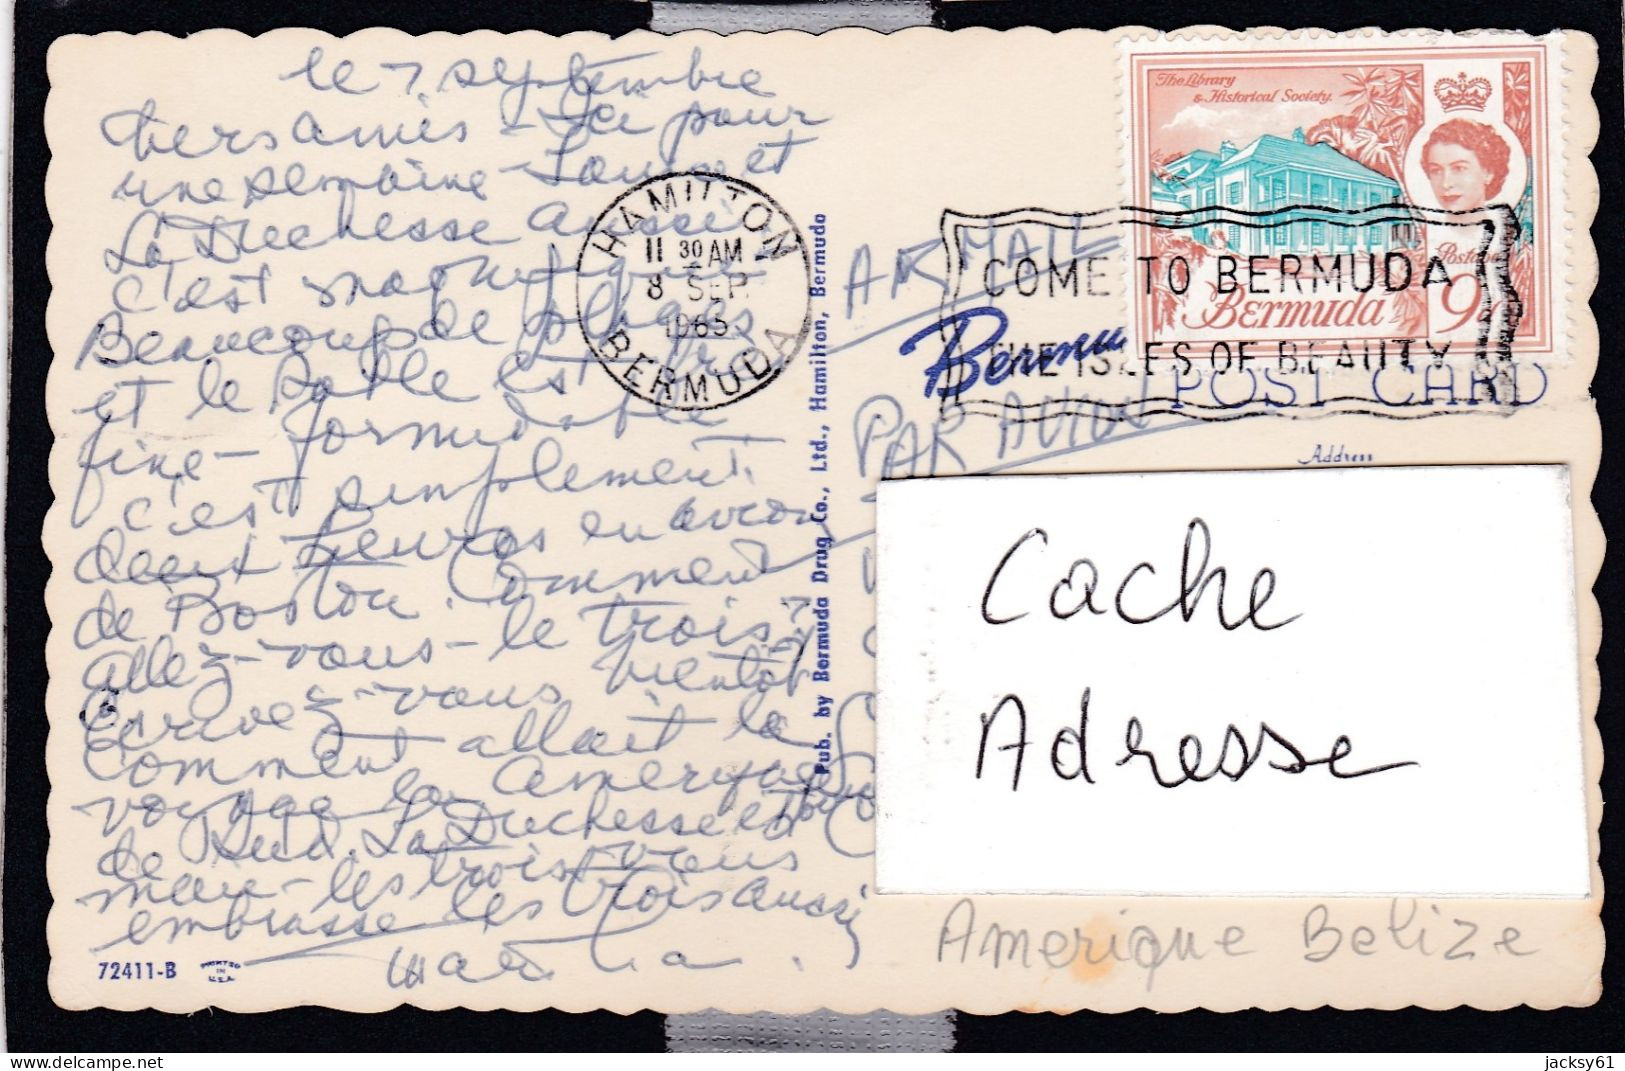 le 7 septembre
chers amis - Ici pour
une semaine - Louise et
La Duchesse aussi
c'est magnifique
Beaucoup de plages
et le sable est très
fine - formidable
c'est simplement
deux heures en avion
de Boston. Comment
allez-vous - le trois?
Ecrivez-vous bientôt
Comment allait le
voyage en Amerique
de Sud. La Duchesse et
man - les trois vous
embrasse les trois aussi
Martha.
72411-B
PRINTED
IN
U.S.A.
Pub. by Bermuda Drug Co., Ltd., Hamilton, Bermuda
HAMILTON
11 30 AM
8 SEP
1965
BERMUDA
AIR MAIL
PAR AVION
The Library
& Historical Society.
Postage
Bermuda 9d
COME TO BERMUDA
THE ISLES OF BEAUTY
Bermu
POST CARD
Address
Cache
Adresse
Amerique Belize
jacksy61